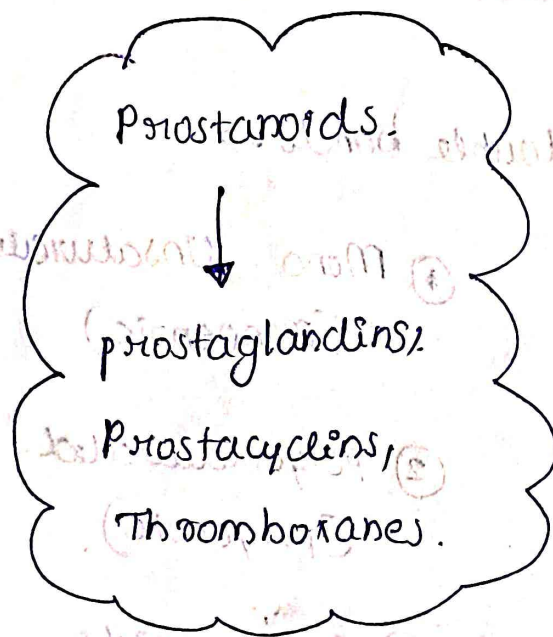 Prostanoids.
prostaglandins,
Prostacyclins,
Thromboxanes.